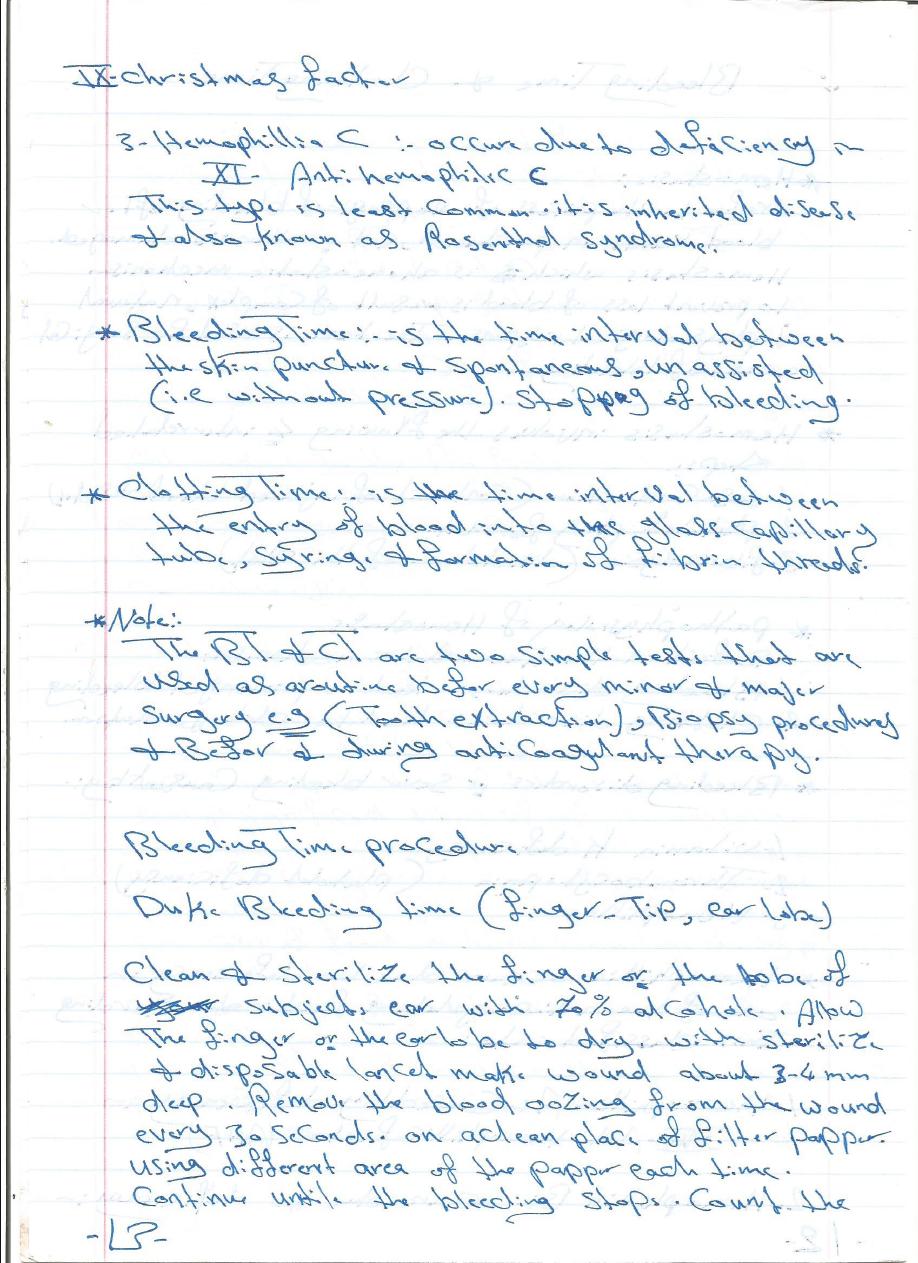 IX-christmas factor
3-Hemophillia C :- occure due to deficiency in
XI- Antihemophilic C
This type is least Common. it is inherited disease
& also known as Rosenthal syndrome.
* Bleeding Time:- is the time interval between
the skin puncture & spontaneous, unassisted
(i.e without pressure). stopping of bleeding.
* Clotting Time:- is the time interval between
the entry of blood into the glass capillary
tube, syringe & formation of fibrin threads.
* Note:-
The BT & CT are two simple tests that are
used as aroutine befor every minor & major
surgery e.g (Tooth extraction), Biopsy procedures
& Befor & during anti coagulant therapy.
Bleeding Time procedure
Duke Bleeding time (finger-Tip, ear lobe)
Clean & sterilize the finger or the lobe of
subjects ear with 70% alcohole. Allow
The finger or the earlobe to dry. with sterilize
& disposable lancet make wound about 3-4 mm
deep. Remove the blood oozing from the wound
every 30 seconds. on aclean place of filter papper.
using different area of the papper each time.
Continue untile the bleeding stops. Count the
-13-